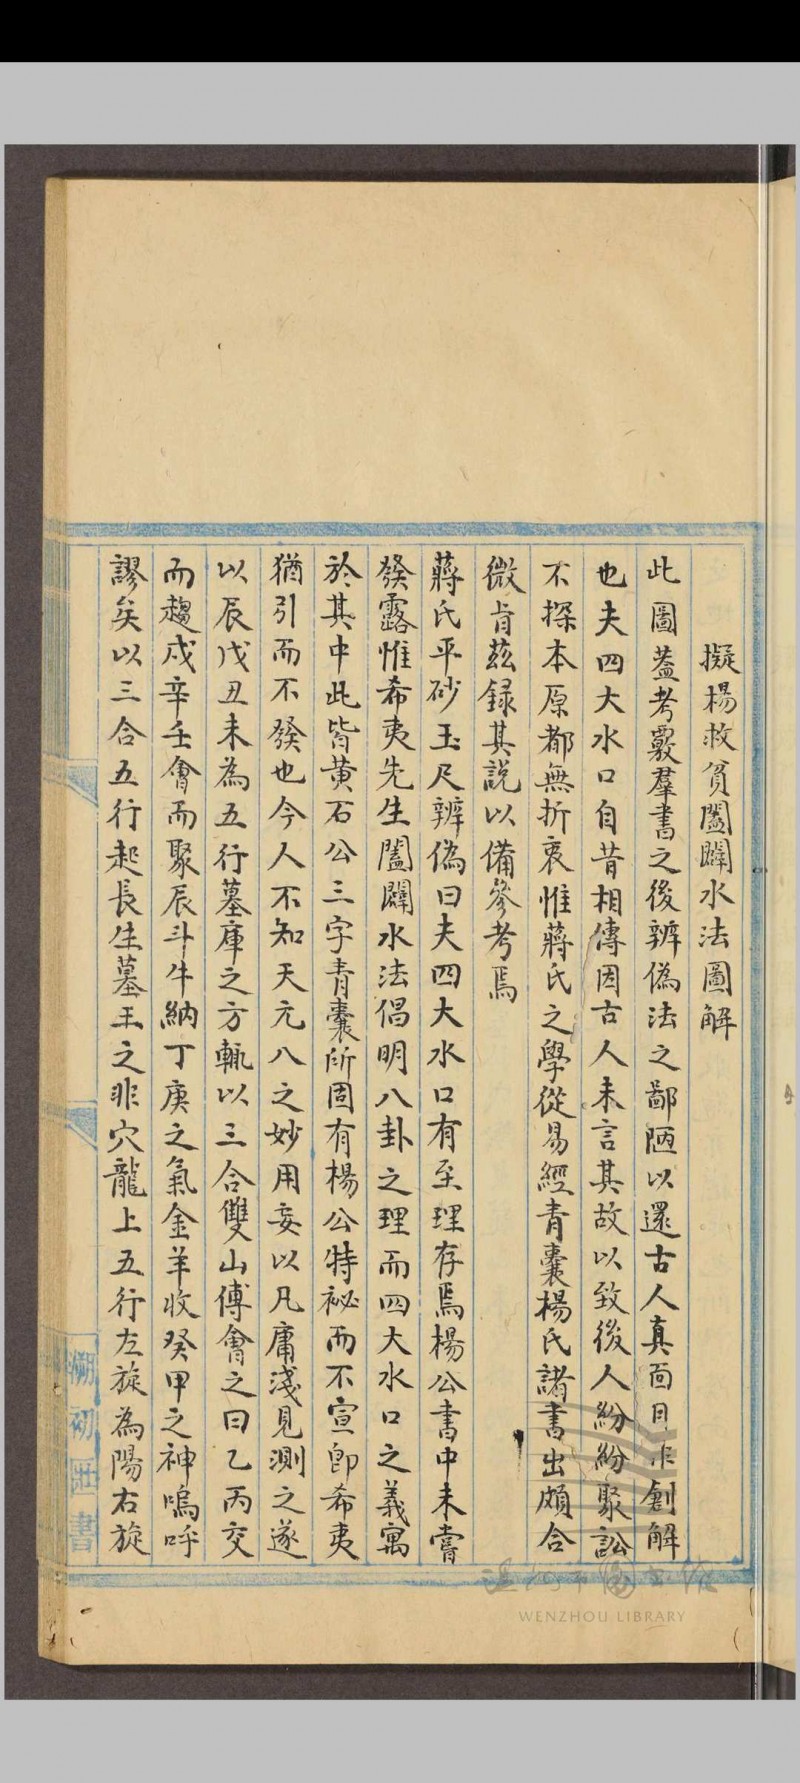 擬楊救貧闔闢水法圖解
此圖蓋考覈羣書之後辨偽法之鄙陋以還古人真面目非創解
也夫四大水口自昔相傳因古人未言其故以致後人紛紛聚訟
不探本原都無折衷惟蔣氏之學從易經青囊楊氏諸書出頗合
微旨茲録其說以備參考焉
蔣氏平砂玉尺辨偽曰夫四大水口有至理存焉楊公書中未嘗
發露惟希夷先生闔闢水法倡明八卦之理而四大水口之義寓
於其中此皆黄石公三字青囊所固有楊公特祕而不宣即希夷
猶引而不發也今人不知天元八之妙用妄以凡庸淺見測之遂
以辰戌丑未為五行墓庫之方輒以三合雙山傅會之曰乙丙交
而趨戌辛壬會而聚辰斗牛納丁庚之氣金羊收癸甲之神嗚呼
謬矣以三合五行起長生墓王之非穴龍上五行左旋為陽右旋
書
WENZHOU LIBRARY